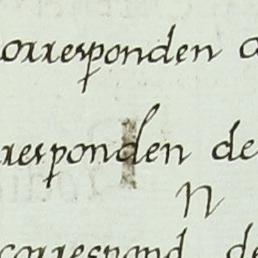 orresponden
responden de
n
correspond de